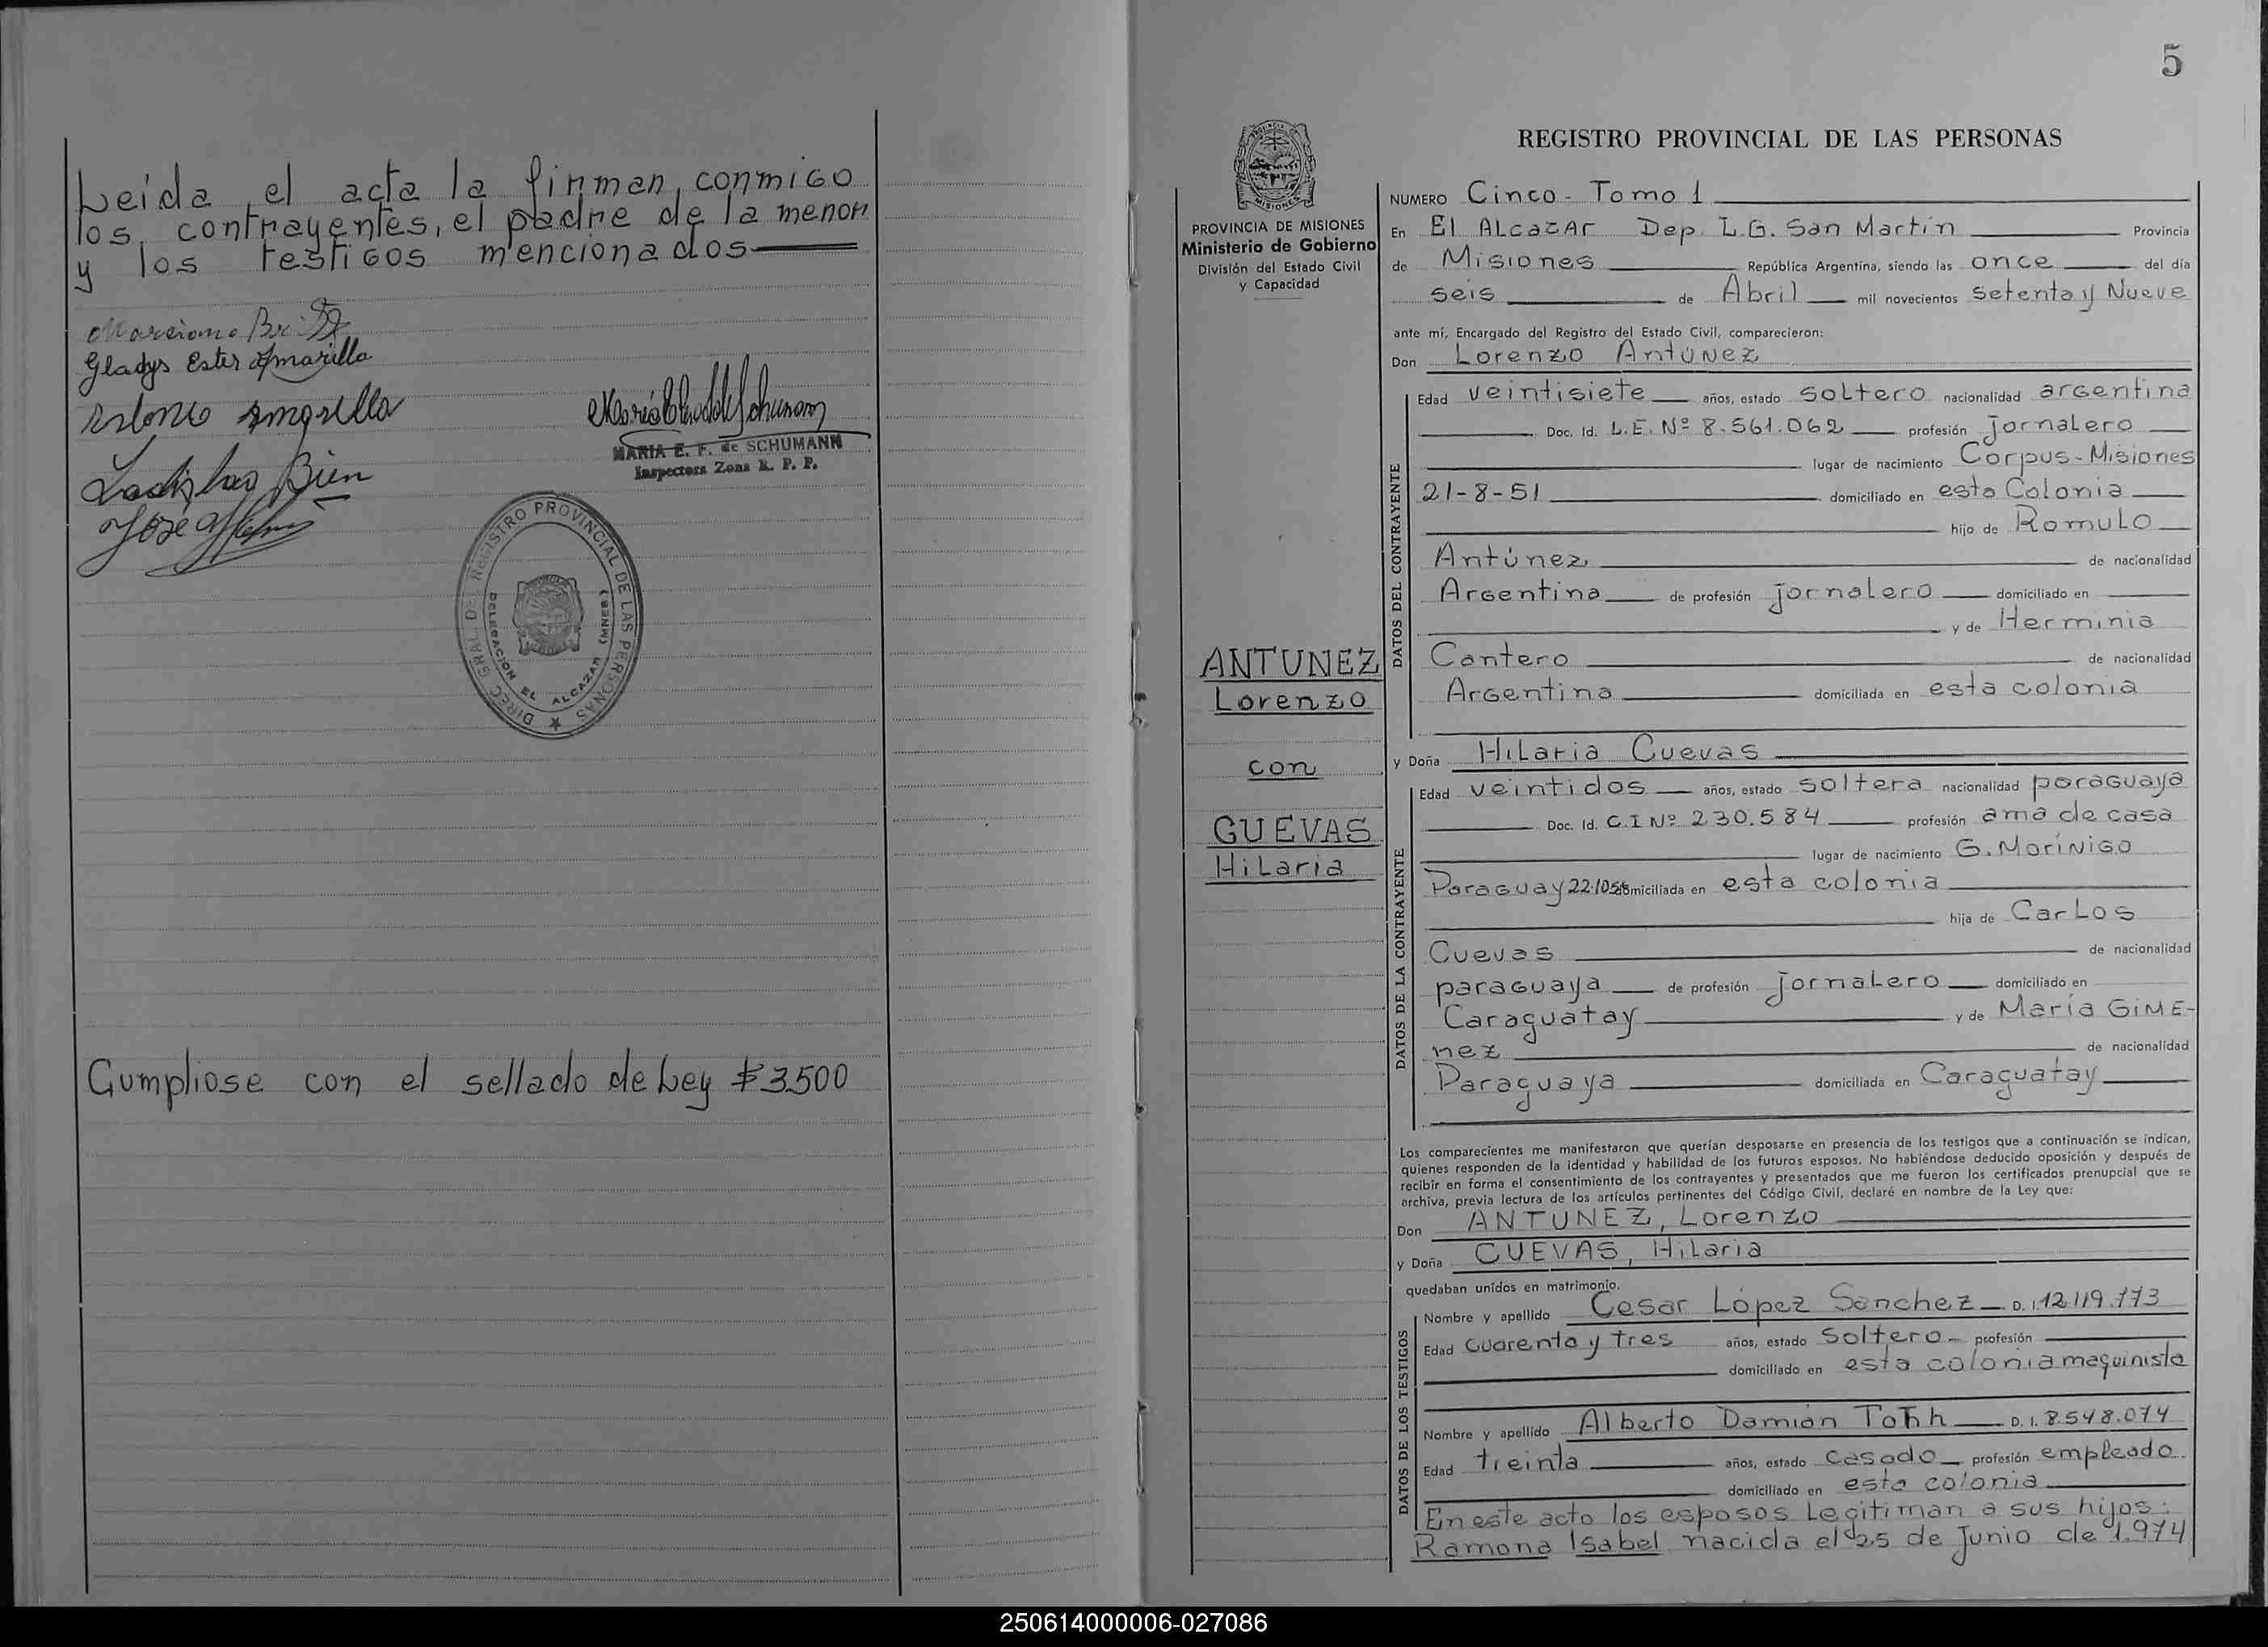 Leida el acta la firman, conmigo
los contrayentes, el padre de la menor
y los testigos mencionados
Gladys Ester Amarilla
Antonio Amarilla
Ladislao Bien
José
MARIA E. F. de SCHUMANN
Inspectora Zona R. P. P.
DIREC. GRAL. DEL REGISTRO PROVINCIAL DE LAS PERSONAS
DELEGACION EL ALCAZAR (MNES)
Cumpliose con el sellado de Ley $ 3.500
5
PROVINCIA DE MISIONES
Ministerio de Gobierno
División del Estado Civil
y Capacidad
ANTUNEZ
Lorenzo
con
CUEVAS
Hilaria
REGISTRO PROVINCIAL DE LAS PERSONAS
NUMERO Cinco - Tomo 1
En El Alcazar Dep. L.G. San Martin Provincia
de Misiones República Argentina, siendo las once del día
seis de Abril mil novecientos setenta y Nueve
ante mí, Encargado del Registro del Estado Civil, comparecieron:
Don Lorenzo Antúnez
DATOS DEL CONTRAYENTE
Edad veintisiete años, estado soltero nacionalidad argentina
Doc. Id. L.E. Nº 8.561.062 profesión jornalero
lugar de nacimiento Corpus - Misiones
21-8-51 domiciliado en esta Colonia
hijo de Romulo
Antúnez de nacionalidad
Argentina de profesión jornalero domiciliado en
y de Herminia
Cantero de nacionalidad
Argentina domiciliada en esta colonia
y Doña Hilaria Cuevas
DATOS DE LA CONTRAYENTE
Edad veintidos años, estado soltera nacionalidad paraguaya
Doc. Id. C.I Nº 230.584 profesión ama de casa
lugar de nacimiento G. Morínigo
Paraguay 22-10-56 domiciliada en esta colonia
hija de Carlos
Cuevas de nacionalidad
paraguaya de profesión jornalero domiciliado en
Caraguatay y de María GIME-
nez de nacionalidad
Paraguaya domiciliada en Caraguatay
Los comparecientes me manifestaron que querían desposarse en presencia de los testigos que a continuación se indican,
quienes responden de la identidad y habilidad de los futuros esposos. No habiéndose deducido oposición y después de
recibir en forma el consentimiento de los contrayentes y presentados que me fueron los certificados prenupcial que se
archiva, previa lectura de los artículos pertinentes del Código Civil, declaré en nombre de la Ley que:
Don ANTUNEZ, Lorenzo
y Doña CUEVAS, Hilaria
quedaban unidos en matrimonio.
DATOS DE LOS TESTIGOS
Nombre y apellido Cesar López Sanchez D. I. 12.119.773
Edad cuarenta y tres años, estado soltero - profesión
domiciliado en esta colonia maquinista
Nombre y apellido Alberto Damián D. I. 8.548.074
Edad treinta años, estado casado profesión empleado
domiciliado en esta colonia
En este acto los esposos Legitiman a sus hijos:
Ramona Isabel nacida el 25 de Junio de 1.974
250614000006-027086